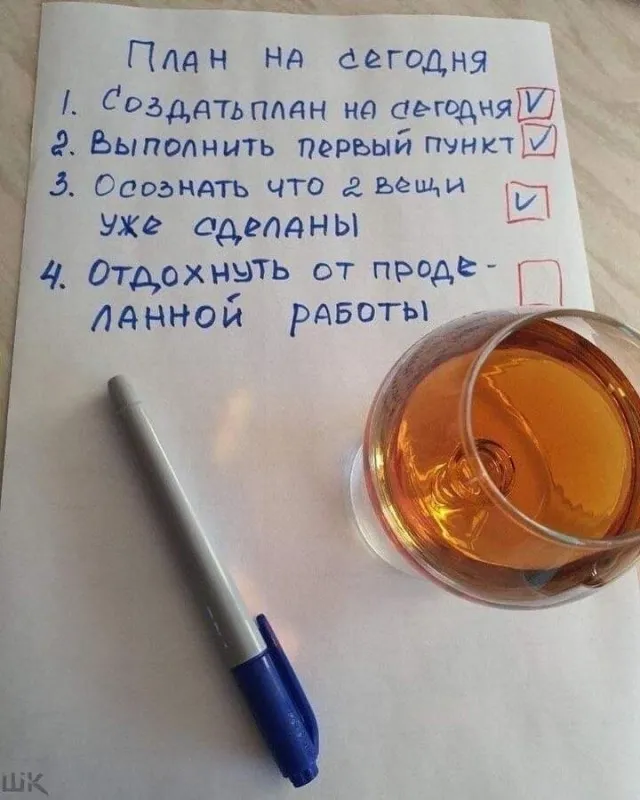 План на сегодня
1. Создать план на сегодня
2. Выполнить первый пункт
3. Осознать что 2 вещи
уже сделаны
4. Отдохнуть от проде-
ланной работы
ШК